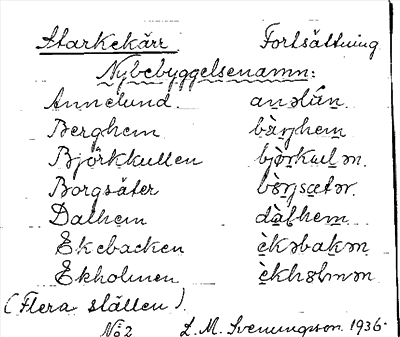 Starkekärr Fortsättning
Nybebyggelsenamn:
Annelund. anəlún.
Berghem bàrjhem
Björkkullen bjørkulən.
Borgsäter
Dalhem
Ekebacken èkəbakən
Ekholmen
(Flera ställen).
No 2 L. M. Svenungsson. 1936.